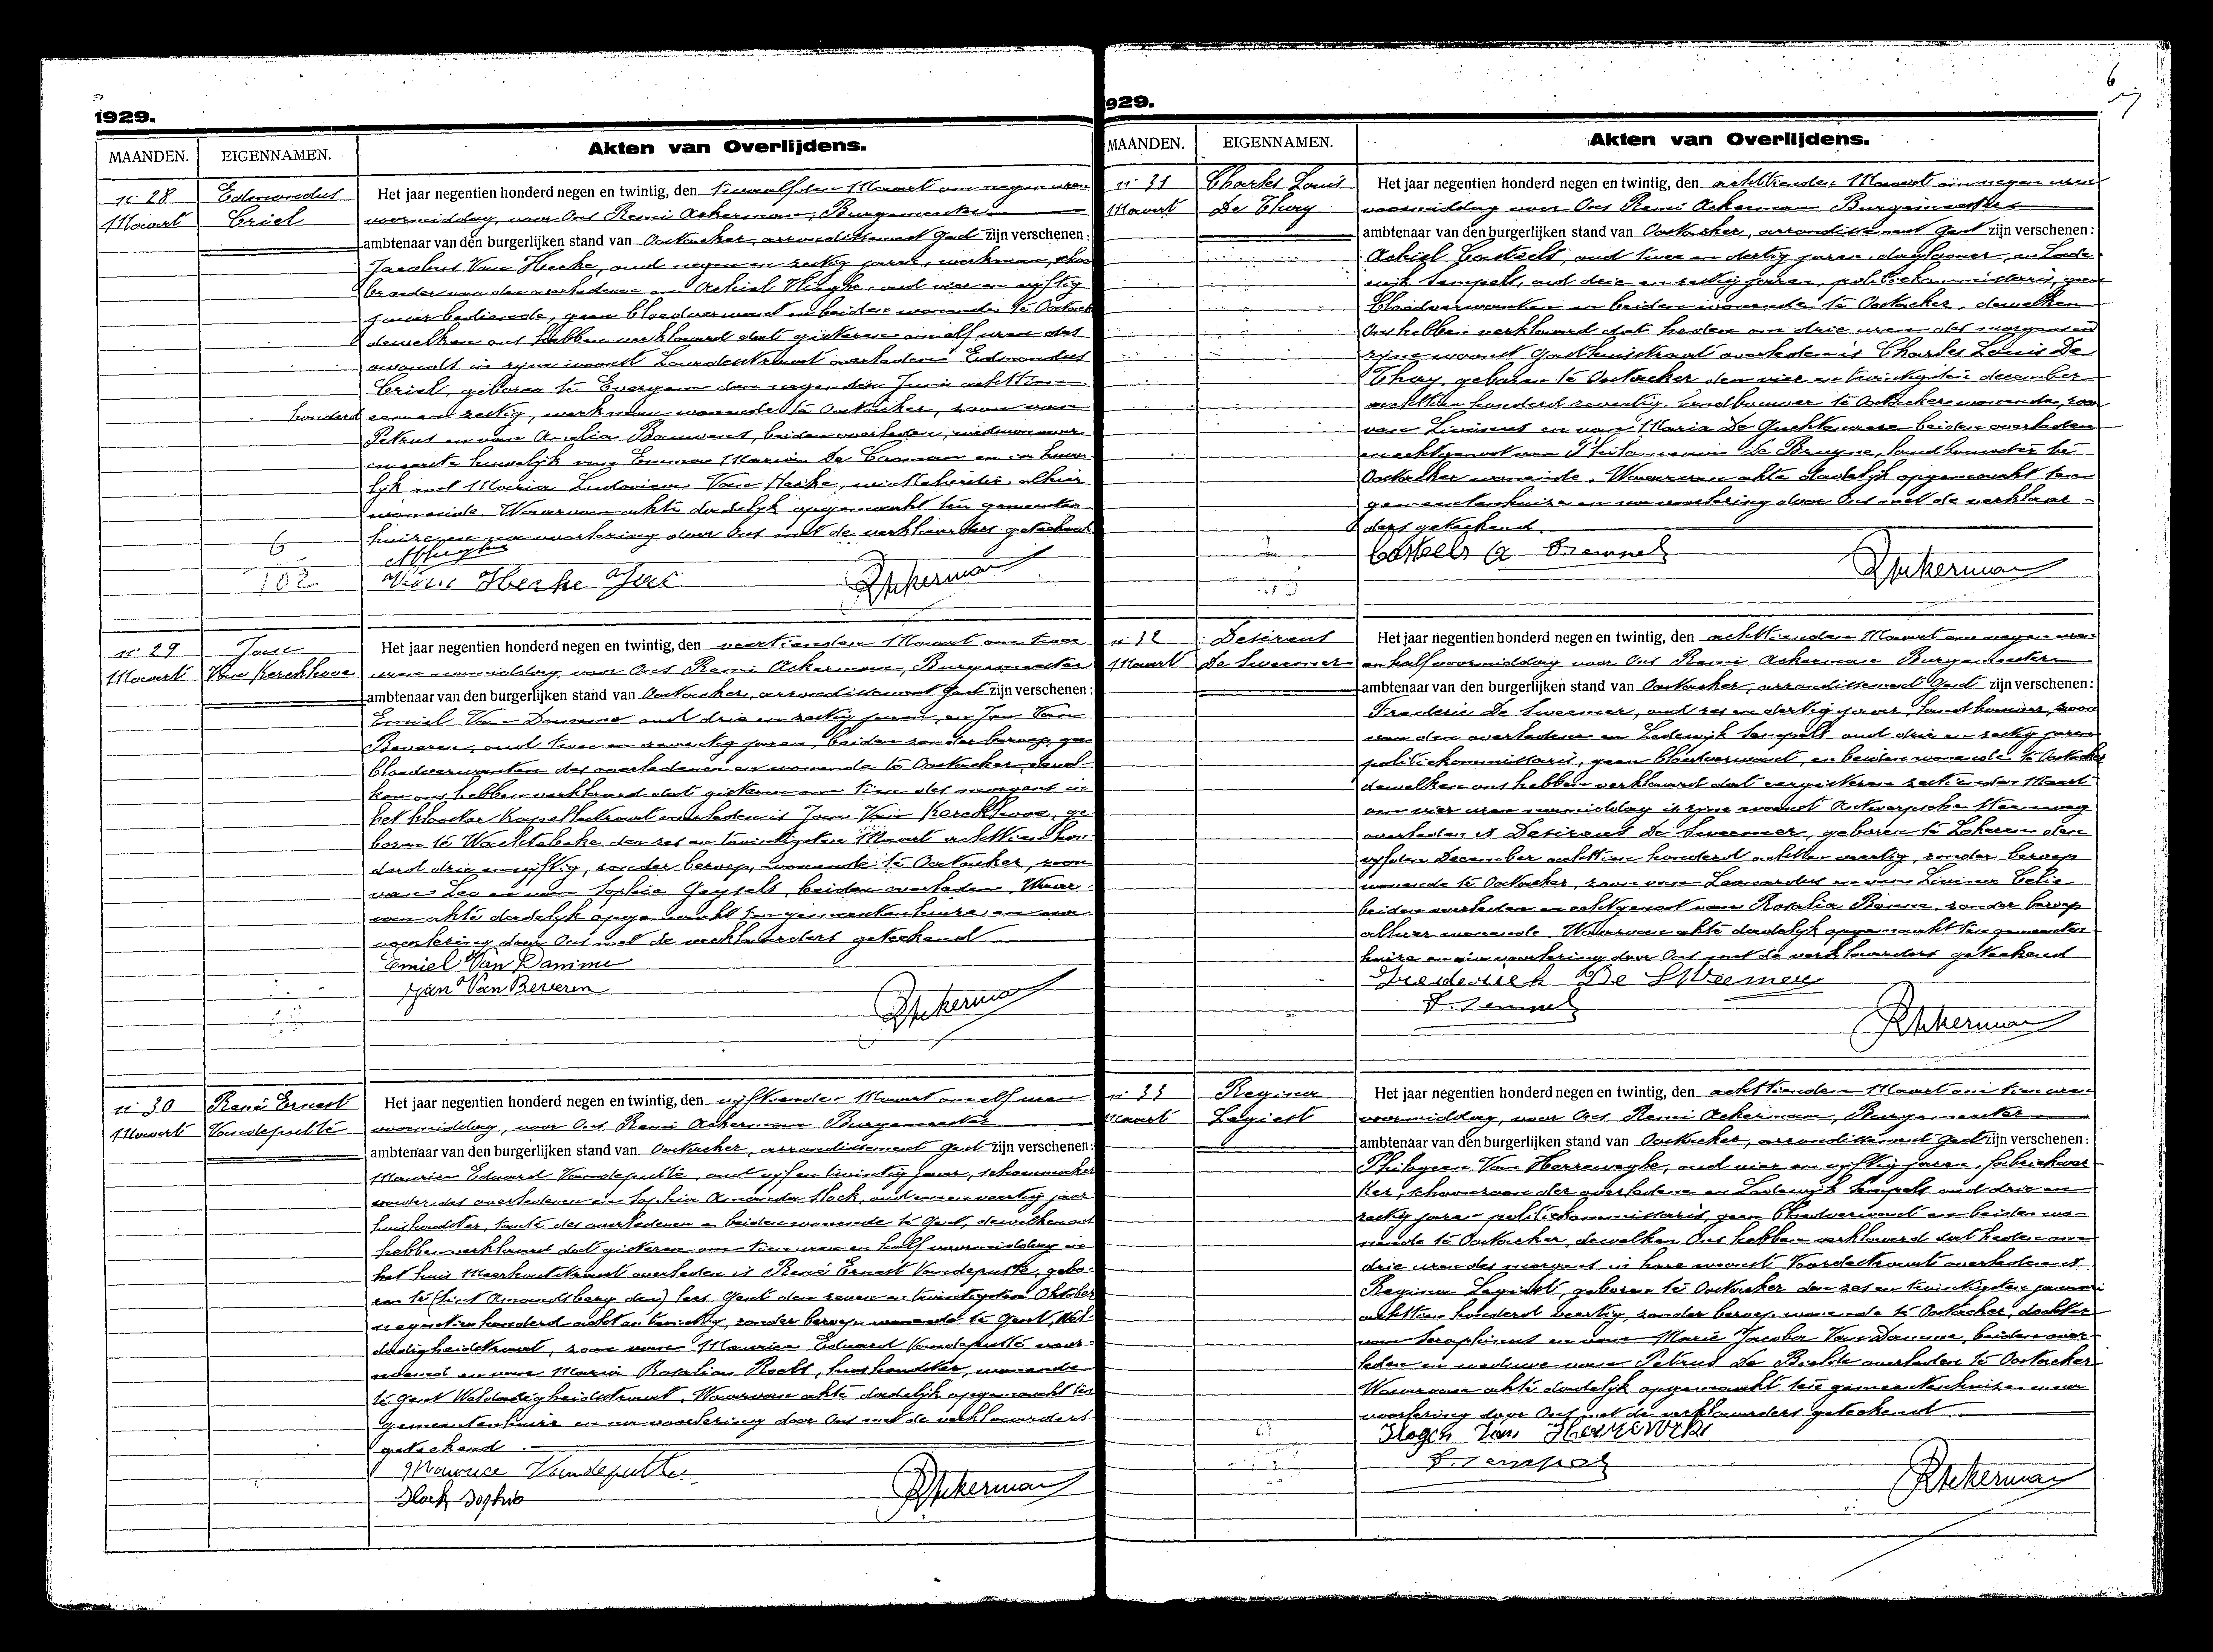 1929.
MAANDEN. EIGENNAMEN. Akten van Overlijdens.
n: 28
Maart
Edmondus
Criel
Het jaar negentien honderd negen en twintig, den twaalfden Maart om negen uren
voormiddag, voor Ons Remi Ackerman, Burgemeester
ambtenaar van den burgerlijken stand van Oostacker, arrondissement Gent zijn verschenen:
Jacobus Van Hecke, oud negen en zestig jaren, werkman, schoon
broeder van den overledene en Achiel Hughe, oud vier en vijftig
jaren bediende, geen bloedverwant en beiden wonende te Oostack
dewelken ons hebben verklaard dat gisteren om elf uren des
avonds in zijne woonst Lourdesstraat overleden is Edmondus
Criel, geboren te Evergem den negenden Juni achttien
honderd een en zestig, werkman wonende te Oostacker, zoon van
Petrus en van Amelia Bauwens, beiden overleden, weduwnaar
in eerste huwelijk van Emma Maria De Cooman en in huwe
lijk met Maria Ludovica Van Hecke, winkelierster, alhier
wonende. Waarvan akte dadelijk opgemaakt ten gemeenten
huize, en na voorlezing door Ons met de verklaarders geteekend
6
102
Van Hecke Jac
RAckerman
n: 29
Maart
Joan
Van Kerckhove
Het jaar negentien honderd negen en twintig, den veertienden Maart om twee
uren namiddag, voor Ons Remi Ackerman, Burgemeester
ambtenaar van den burgerlijken stand van Oostacker, arrondissement Gent zijn verschenen:
Emiel Van Damme oud drie en zestig jaren, en Jan Van
Beveren, oud twee en zeventig jaren, beiden zonder beroep, geen
bloedverwanten des overledenen en wonende te Oostacker, dewel
ken ons hebben verklaard dat gisteren om tien des morgens in
het klooster Kapellestraat overleden is Joan Van Kerckhove, ge
boren te Wachtebeke den zes en twintigsten Maart achttien hon
derd drie en vijftig, zonder beroep, wonende te Oostacker, zoon
van Leo en van Sophia Geysels, beiden overleden. Waar
van akte dadelijk opgemaakt ten gemeentenhuize, en na
voorlezing door Ons met de verklaarders geteekend
Emiel Van Damme
Jan Van Beveren
RAckerman
n: 30
Maart
René Ernest
Vandeputte
Het jaar negentien honderd negen en twintig, den vijftienden Maart om elf uren
voormiddag, voor Ons Remi Ackerman Burgemeester
ambtenaar van den burgerlijken stand van Oostacker, arrondissement Gent zijn verschenen:
Maurice Eduard Vandeputte, oud vijf en twintig jaar, schoenmaker
vader des overledenen en Sophia Amanda Hock, oud een en veertig jaar
huishoudster, tante des overledenen en beiden wonende te Gent, dewelken ons
hebben verklaard dat gisteren om tien uren en half voormiddag in
het huis Meerhoutstraat overleden is René Ernest Vandeputte, gebo
ren te (Sint Amandsberg den) lees Gent den zeven en twintigsten Oktober
negentien honderd acht en twintig, zonder beroep wonende te Gent, Wel
dadigheidstraat, zoon van Maurice Eduard Vandeputte voor
noemd en van Maria Rosalia Roels, huishoudster, wonende
te Gent Weldadigheidstraat. Waarvan akte dadelijk opgemaakt ten
gemeentenhuize en na voorlezing door Ons met de verklaarders
geteekend.
Maurice Vandeputte
Hock Sophie
RAckerman
929.
6
MAANDEN. EIGENNAMEN. Akten van Overlijdens.
n: 31
Maart
Charles Louis
De Thay
Het jaar negentien honderd negen en twintig, den achttienden Maart om negen uren
voormiddag voor Ons Remi Ackerman Burgemeester
ambtenaar van den burgerlijken stand van Oostacker, arrondissement Gent zijn verschenen:
Achiel Casteels, oud twee en dertig jaren, daglooner, en Lode
wijk Sempels, oud drie en zestig jaren, politiekommissaris, geen
bloedverwanten en beiden wonende te Oostacker, dewelken
Ons hebben verklaard dat heden om drie uren des morgens in
zijne woonst Gasthuisstraat overleden is Charles Louis De
Thay, geboren te Oostacker den vier en twintigsten december
achttien honderd zeventig, landbouwer te Oostacker wonende, zoon
van Livinus en van Maria De Guchtenaere beiden overleden
en echtgenoot van Philomena De Bruyne, landbouwster te
Oostacker wonende. Waarvan akte dadelijk opgemaakt ten
gemeentenhuize en na voorlezing door Ons met de verklaar-
ders geteekend.
Casteels A Sempels
RAckerman
n: 32
Maart
Desireus
De Sweemer
Het jaar negentien honderd negen en twintig, den achttienden Maart om negen uren
en half voormiddag voor Ons Remi Ackerman Burgemeester
ambtenaar van den burgerlijken stand van Oostacker, arrondissement Gent zijn verschenen:
Frederic De Sweemer, oud zes en dertig jaar, landbouwer, zoon
van den overledene en Lodewijk Sempels oud drie en zestig jaren
politiekommissaris, geen bloedverwant, en beiden wonende te Oostacker
dewelken ons hebben verklaard dat eergisteren zestienden Maart
om vier uren namiddag in zijne woonst Antwerpsche Steenweg
overleden is Desireus De Sweemer, geboren te Lokeren den
vijfden December achttien honderd acht en veertig, zonder beroep
wonende te Oostacker, zoon van Leonardus en van Livina Celie
beiden overleden en echtgenoot van Rosalia Bonne, zonder beroep
alhier wonende. Waarvan akte dadelijk opgemaakt ten gemeenten
huize en na voorlezing door Ons met de verklaarders geteekend.
Frederick De Sweemer
L. Sempels
RAckerman
n: 33
Maart
Regina
Legiest
Het jaar negentien honderd negen en twintig, den achttienden Maart om tien uren
voormiddag, voor Ons Remi Ackerman, Burgemeester
ambtenaar van den burgerlijken stand van Oostacker, arrondissement Gent zijn verschenen:
Philogeen Van Herreweghe, oud vier en vijftig jaren, fabriekwer
ker, schoonzoon der overledene en Lodewijk Sempels oud drie en
zestig jaren politiekommissaris, geen bloedverwant en beiden wo-
nende te Oostacker, dewelken Ons hebben verklaard dat heden om
drie uren des morgens in hare woonst Voordestraat overleden is
Regina Legiest, geboren te Oostacker den zes en twintigsten januari
achttien honderd veertig, zonder beroep wonende te Oostacker, dochter
van Seraphinus en van Marie Jacoba Van Damme, beiden over
leden en weduwe van Petrus De Bielde overleden te Oostacker
Waarvan akte dadelijk opgemaakt ten gemeentenhuize en na
voorlezing door Ons met de verklaarders geteekend
L. Sempels
RAckerman